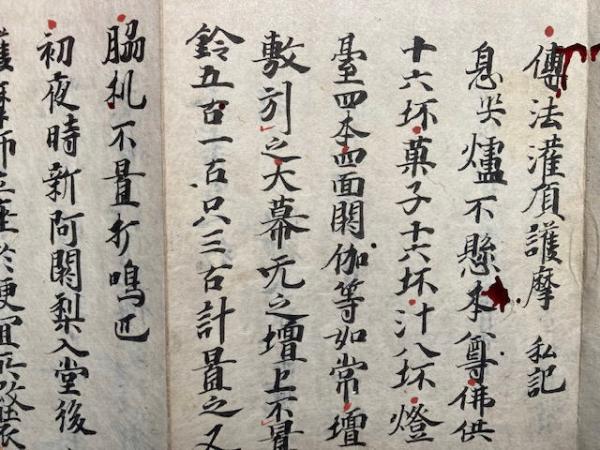 傳法灌頂護摩 私記
息災爐不懸本尊佛供
十六坏菓子十六坏汁八坏燈
臺四本四面閼伽等如常壇
敷引之大幕无之壇上不置
鈴五古一古只三古計置之又
脇机不置打鳴
初夜時新阿闍梨入堂後
護摩師